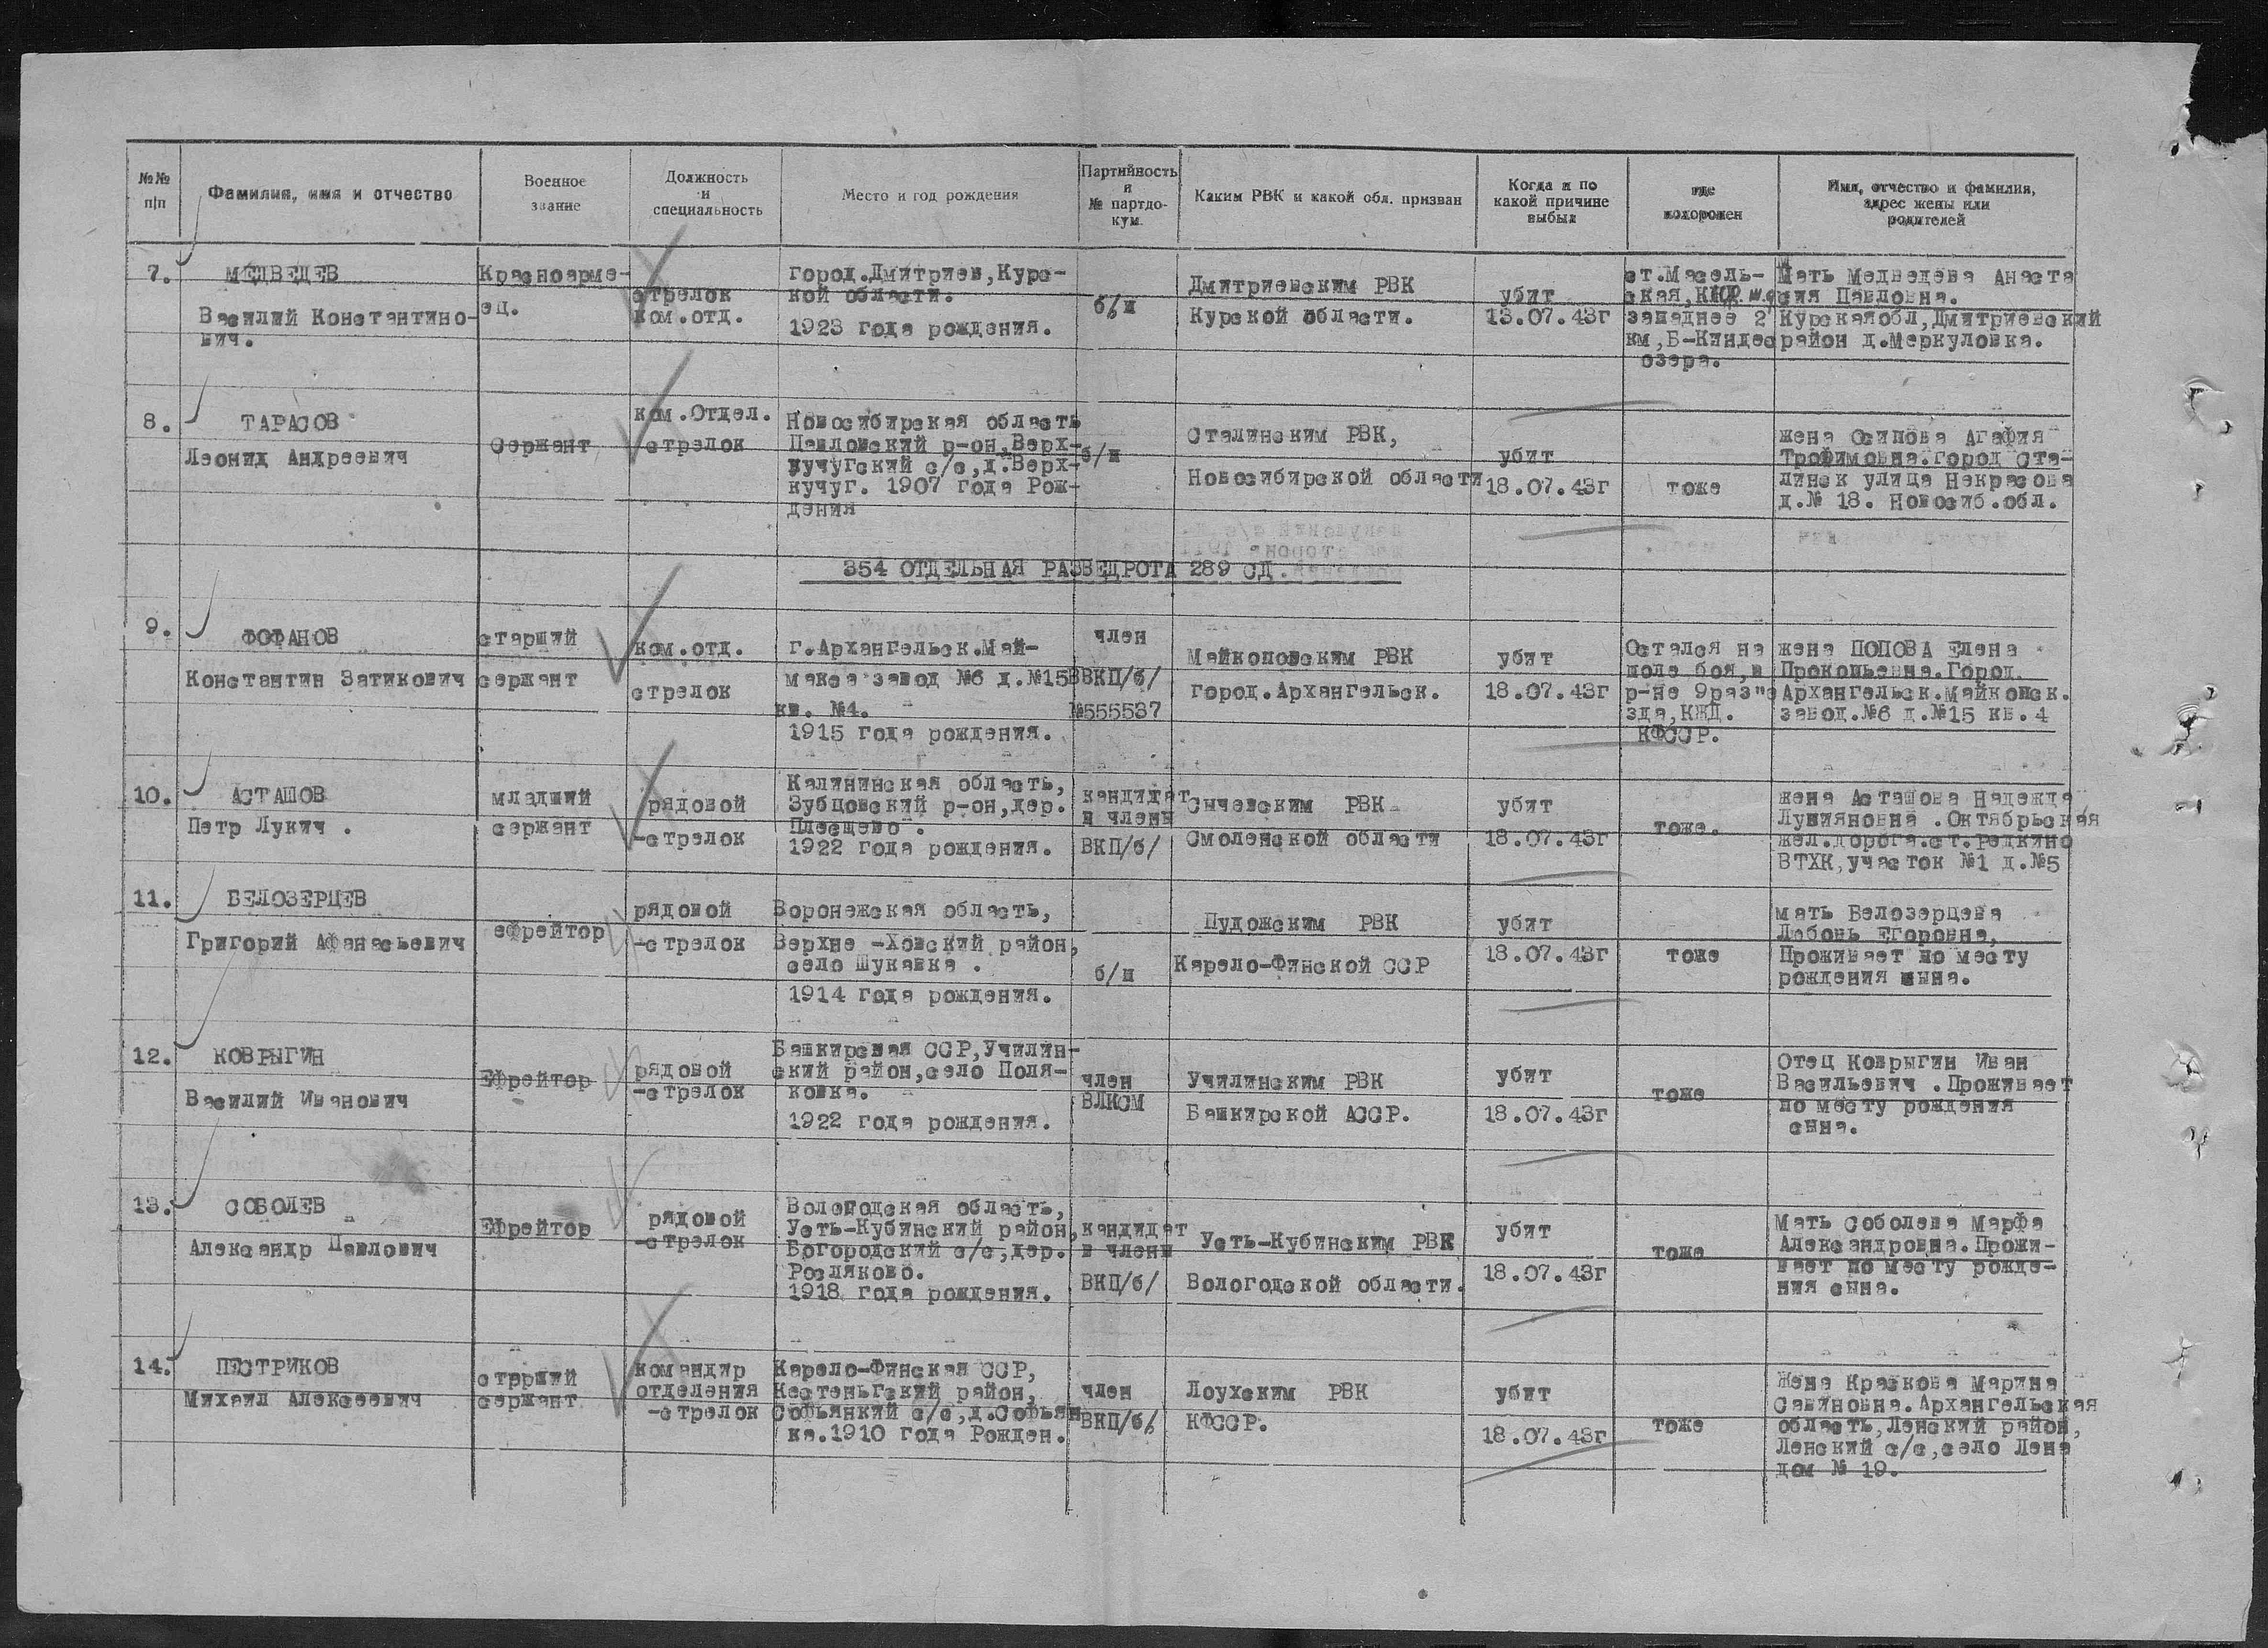 №№ п/п
Фамилия, имя и отчество
Военное звание
Должность и специальность
Место и год рождения
Партийность и № партдокум.
Каким РВК и какой обл. призван
Когда и по какой причине выбыл
где похоронен
Имя, отчество и фамилия, адрес жены или родителей
7.
МЕДВЕДЕВ
Василий Константино-
вич.
Красноарме-
ец.
стрелок
ком.отд.
город.Дмитриев,Курс-
кой области.
1923 года рождения.
б/п
Дмитриевским РВК
Курской области.
убит
13.07.43г
ст.Масель-
ская,
западнее 2
км,Б-Киндос
озера.
Мать Медведева Анаста
сия Павловна.
Курскаяобл,Дмитриевский
район д.Меркуловка.
8.
ТАРАСОВ
Леонид Андреевич
Сержант
ком.Отдел.
стрелок
Новосибирская область
Павловский р-он,Верх-
кучугский с/с,д.Верх-
кучуг. 1907 года Рож-
дения
б/п
Сталинским РВК,
Новосибирской области
убит
18.07.43г
тоже
жена Осипова Агафия
Трофимовна.город Ста-
линск улица Некрасова
д.№ 18. Новосиб.обл.
354 ОТДЕЛЬНАЯ РАЗВЕДРОТА 289 СД.
9.
ФОФАНОВ
Константин Затикович
старший
сержант
ком.отд.
стрелок
г.Архангельск.Май-
макса завод №6 д.№15В
кв. №4.
1915 года рождения.
член
ВКП/б/
№555537
Майкоповским РВК
город.Архангельск.
убит
18.07.43г
Остался на
поле боя,в
р-не 9раз"е
зда,КЖД.
КФССР.
жена ПОПОВА Елена
Прокопьевна.Город.
Архангельск.майкопск.
завод.№6 д.№15 кв.4
10.
АСТАШОВ
Петр Лукич .
младший
сержант
рядовой
-стрелок
Калининская область,
Зубцовский р-он,дер.
Плещево .
1922 года рождения.
кандидат
в члены
ВКП/б/
Сычевским РВК
Смоленской области
убит
18.07.43г
тоже.
жена Асташова Надежда
Лукияновна .Октябрьская
жел.дорога.ст.Редкино
ВТХК,участок №1 д.№5
11.
БЕЛОЗЕРЦЕВ
Григорий Афанасьевич
ефрейтор
рядовой
-стрелок
Воронежская область,
Верхне -Ховский район,
село Шукавка .
1914 года рождения.
б/п
Пудожским РВК
Карело-Финской ССР
убит
18.07.43г
тоже
мать Белозерцева
Любовь Егоровна,
Проживает по месту
рождения сына.
12.
КОВРЫГИН
Василий Иванович
Ефрейтор
рядовой
-стрелок
Башкирская ССР,Училин-
ский район,село Поля-
ковка.
1922 года рождения.
член
ВЛКСМ
Училинским РВК
Башкирской АССР.
убит
18.07.43г
тоже
Отец Коврыгин Иван
Васильевич .Проживает
по месту рождения
сына.
13.
СОБОЛЕВ
Александр Павлович
Ефрейтор
рядовой
-стрелок
Вологодская область,
Усть-Кубинский район,
Богородский с/с,дер.
Розляково.
1918 года рождения.
кандидат
в члены
ВКП/б/
Усть-Кубинским РВК
Вологодской области.
убит
18.07.43г
тоже
Мать Соболева Марфа
Александровна.Прожи-
вает по месту рожде-
ния сына.
14.
ПЕСТРИКОВ
Михаил Алексеевич
старший
сержант
командир
отделения
-стрелок
Карело-Финская ССР,
Кестеньгский район,
Софьянкий с/с,д.Софьян
ка.1910 года Рожден.
член
ВКП/б/
Лоухским РВК
КФССР.
убит
18.07.43г
тоже
Жена Краскова Марина
Савиновна.Архангельская
область,Ленский район,
Ленский с/с,село Лена
дом № 19.